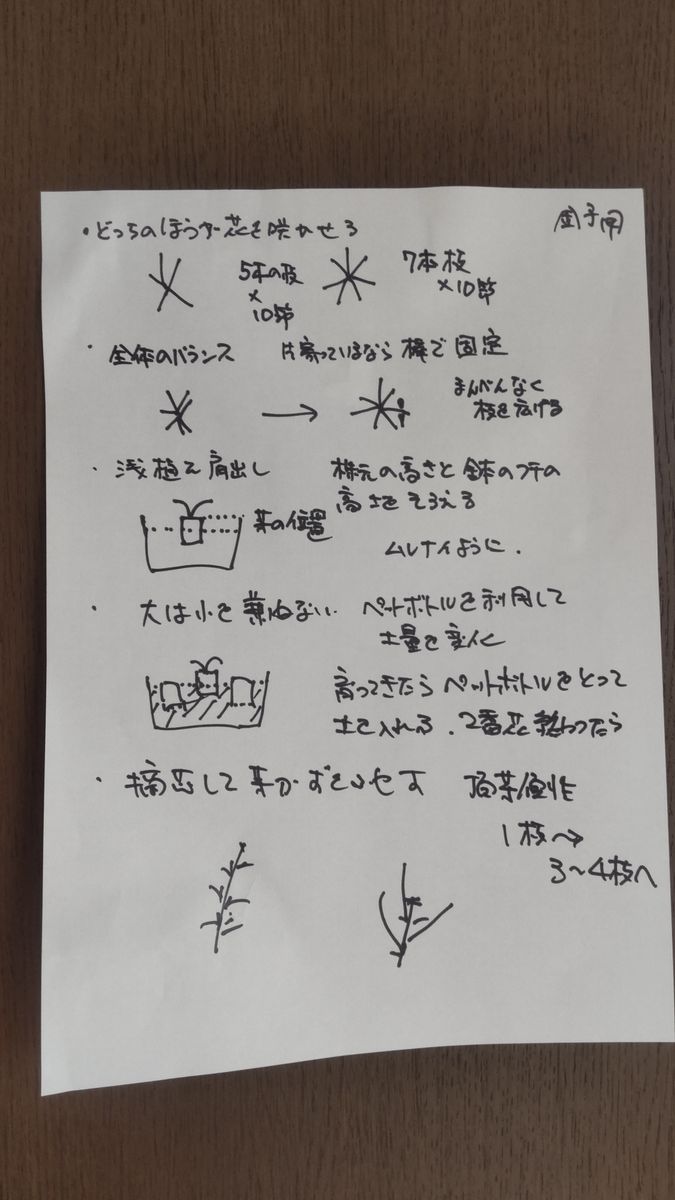 ・どっちのほうが花を咲かせる
金子用
5本の枝
×
10節
7本枝
×10節
・全体のバランス 片寄っているなら棒で固定
まんべんなく
枝を広げる
・浅植え肩出し 株元の高さと鉢のフチの
高さをそろえる
芽の位置
ムレナイように.
・大は小を兼ねない ペットボトルを利用して
土量を変化
育ってきたらペットボトルをとって
土を入れる.2番花終わったら
・摘芯して芽かずをふやす 頂芽優性
1枝→
3〜4枝へ